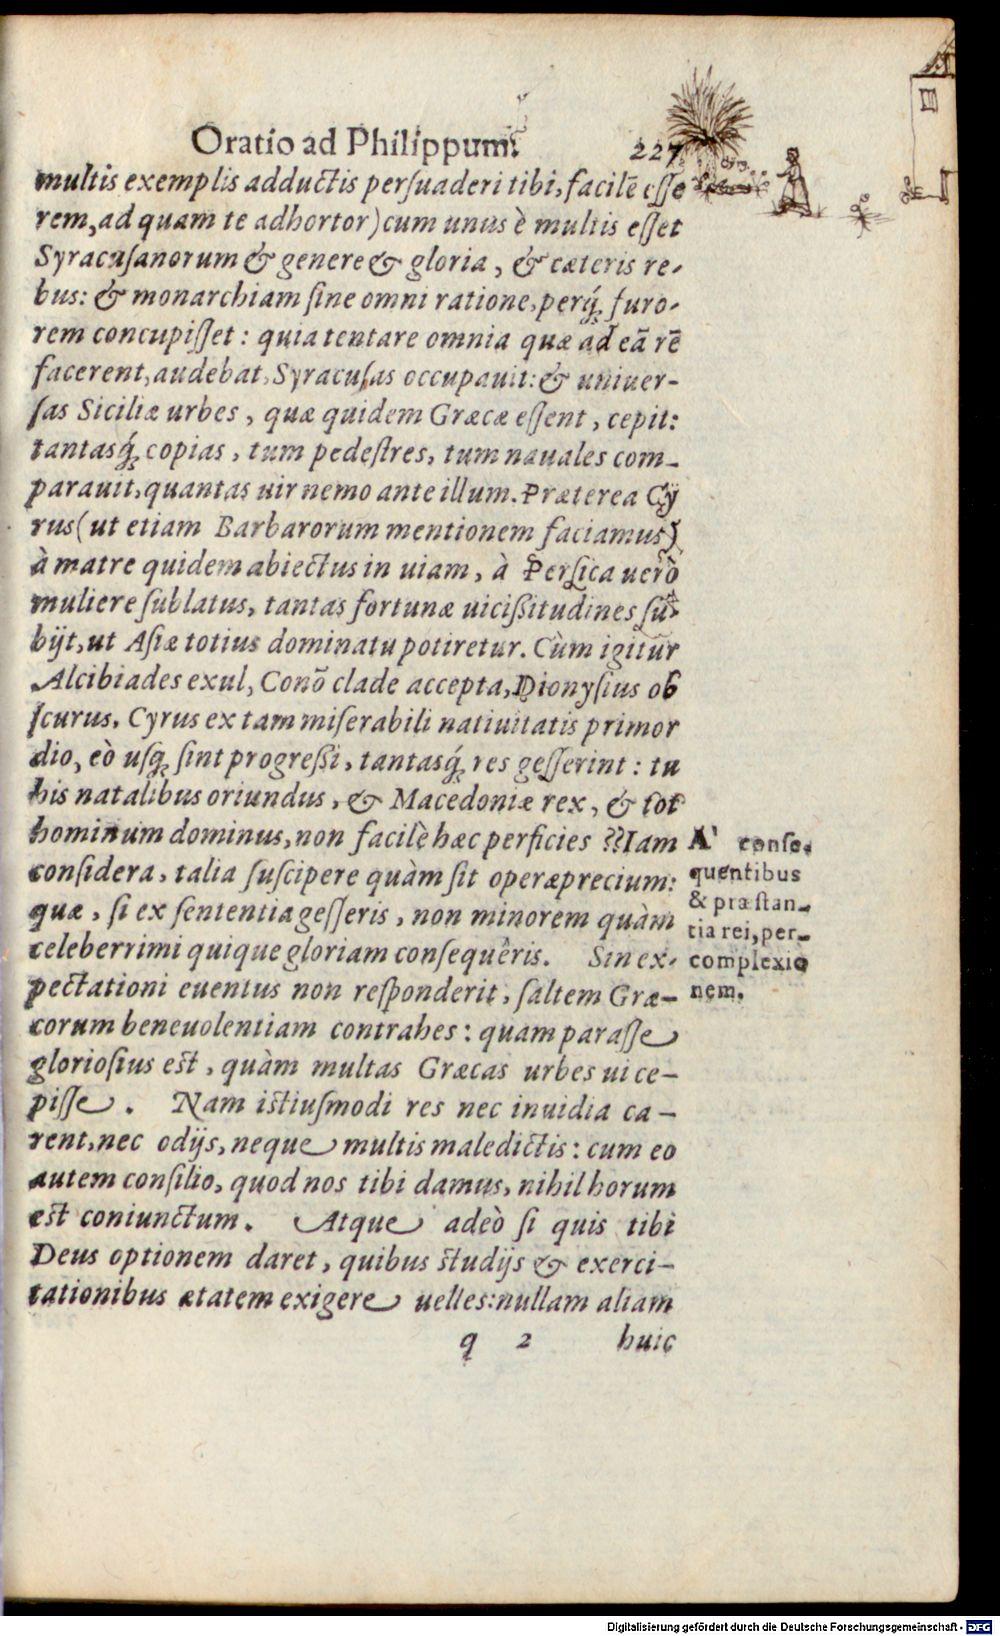 Oratio ad Philippum. 227
multis exemplis adductis persuaderi tibi, facilē esse
rem, ad quam te adhortor) cum unus è multis esset
Syracusanorum & genere & gloria, & cæteris re-
bus: & monarchiam sine omni ratione, perq́; furo-
rem concupisset: quia tentare omnia quæ ad eā rē
facerent, audebat, Syracusas occupauit: & uniuer-
sas Siciliæ urbes, quæ quidem Græcæ essent, cepit:
tantasq́; copias, tum pedestres, tum nauales com-
parauit, quantas uir nemo ante illum. Præterea Cy
rus (ut etiam Barbarorum mentionem faciamus)
à matre quidem abiectus in uiam, à Persica uerò
muliere sublatus, tantas fortunæ uicißitudines su-
bijt, ut Asiæ totius dominatu potiretur. Cùm igitur
Alcibiades exul, Conō clade accepta, Dionysius ob
scurus, Cyrus ex tam miserabili natiuitatis primor
dio, eò usq; sint progreßi, tantasq́; res gesserint: tu
his natalibus oriundus, & Macedoniæ rex, & tot
hominum dominus, non facilè hæc perficies ?? Iam
considera, talia suscipere quàm sit operæprecium:
quæ, si ex sententia gesseris, non minorem quàm
celeberrimi quique gloriam consequêris. Sin ex-
pectationi euentus non responderit, saltem Græ-
corum beneuolentiam contrahes: quam parasse
gloriosius est, quàm multas Græcas urbes ui ce-
pisse. Nam istiusmodi res nec inuidia ca-
rent, nec odijs, neque multis maledictis: cum eo
autem consilio, quod nos tibi damus, nihil horum
est coniunctum. Atque adeò si quis tibi
Deus optionem daret, quibus studijs & exerci-
tationibus ætatem exigere uelles: nullam aliam
q 2 huic
A' conse-
quentibus
& præstan-
tia rei, per-
complexio
nem.
Digitalisierung gefördert durch die Deutsche Forschungsgemeinschaft - DFG